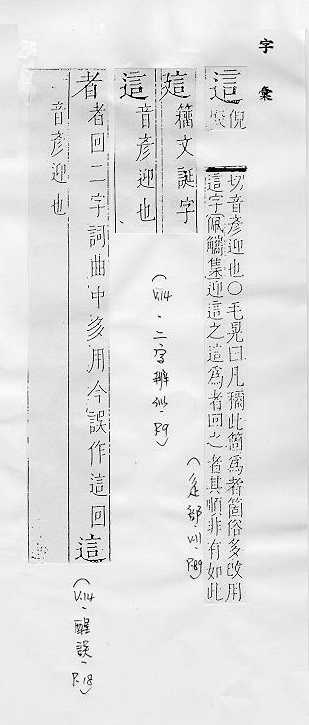 字彙
這
倪
切音彥迎也○毛晃曰凡稱此箇爲者箇俗多改用
這字佩觿集迎這之這爲者回之者其順非有如此
(辵部·VII·P.89)
籒文誕字
這 音彥迎也
(V.14·二字辨似·P.9)
者 者回二字詞曲中多用今誤作這回這
音彥迎也
(V.14·醒誤·P.18)